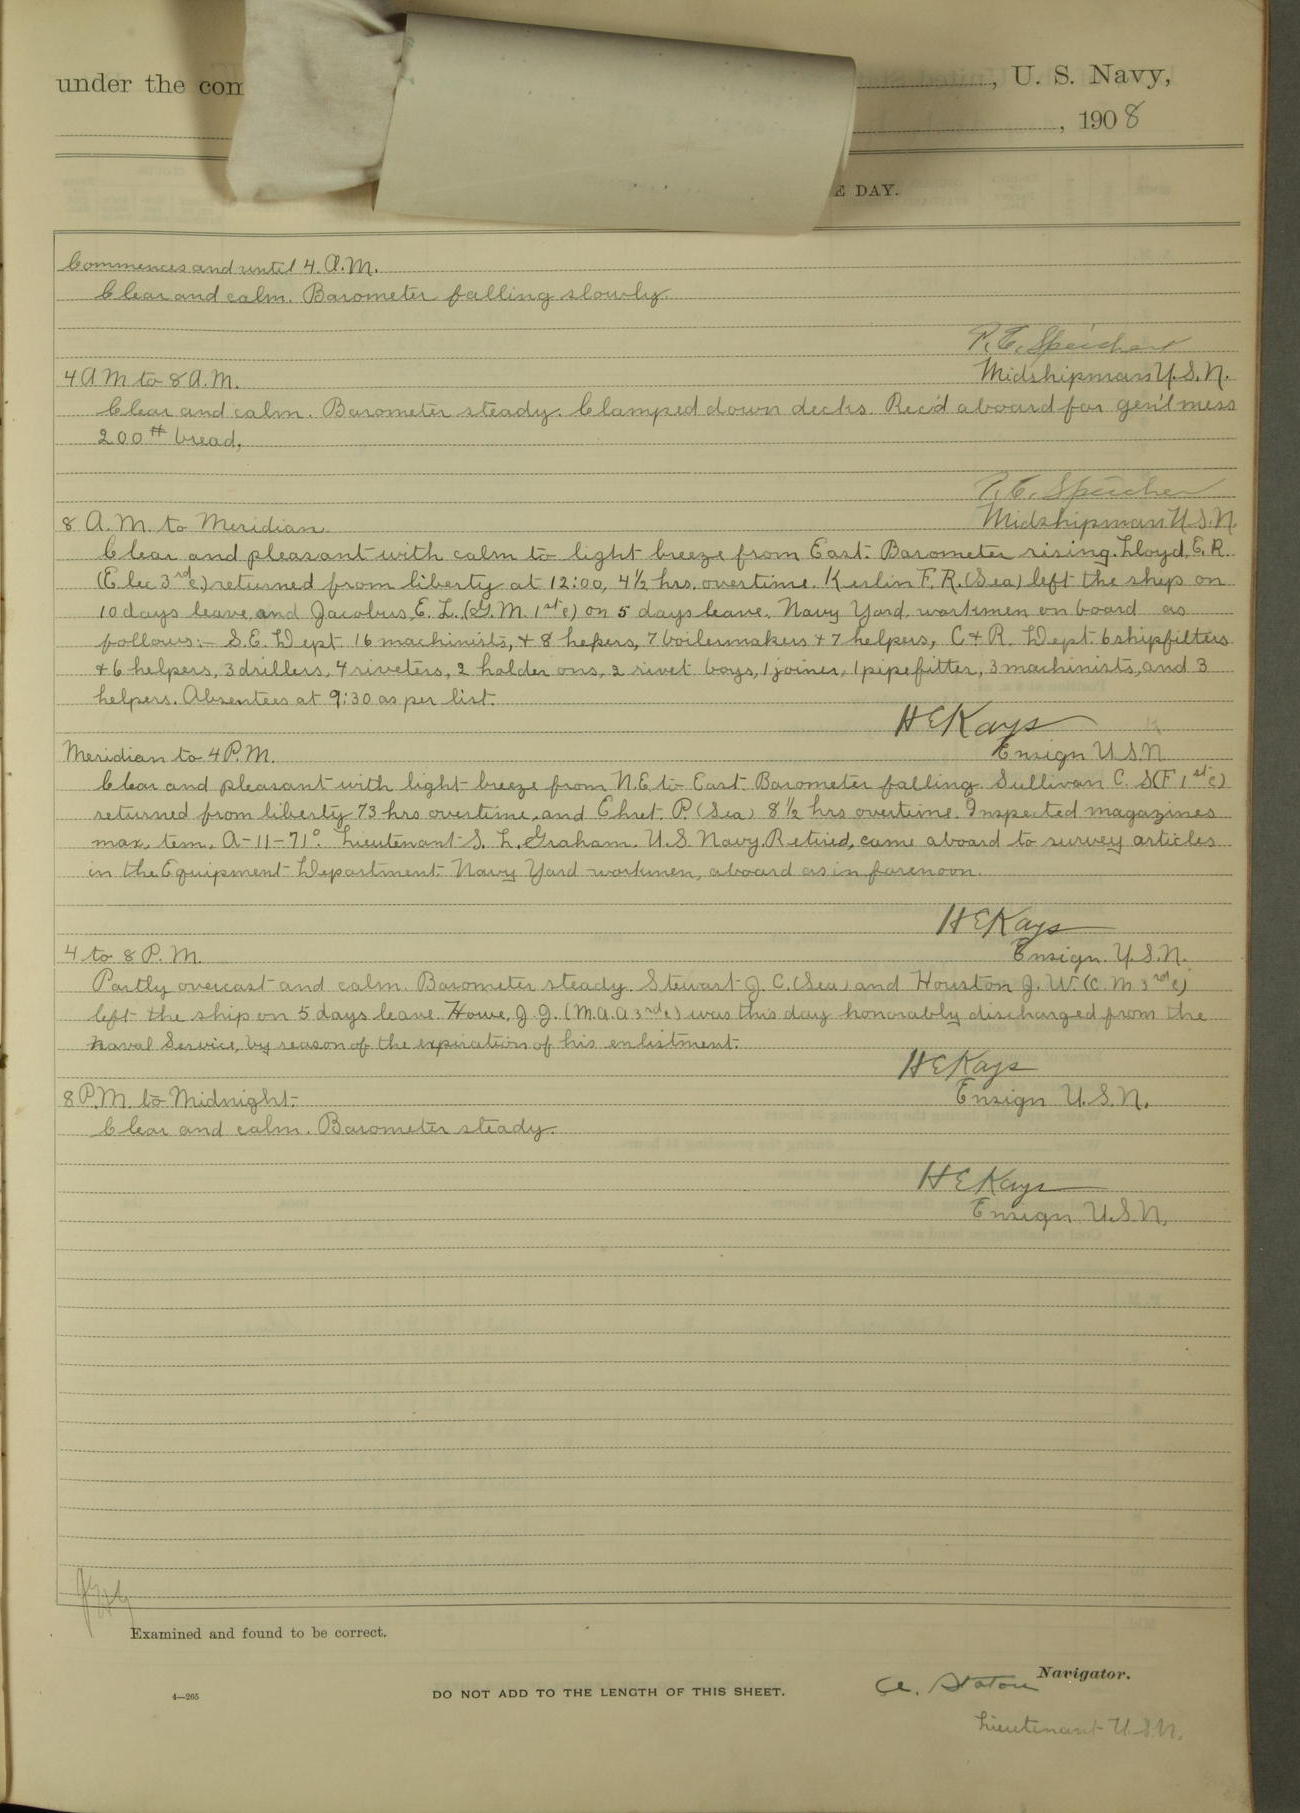 under the com , U. S. Navy,
, 1908
E DAY.
Commences and until 4. A.M.
Clear and calm. Barometer falling slowly.
P. E. Speicher
4 A M to 8 A.M.
Midshipman U.S.N.
Clear and calm. Barometer steady. Clamped down decks. Rec'd aboard for gen'l mess
200 # bread.
P. E. Speicher
8 A.M. to Meridian.
Midshipman U.S.N.
Clear and pleasant with calm to light breeze from East. Barometer rising. Lloyd, E. R.
(Elec 3rd c) returned from liberty at 12:00, 4½ hrs. overtime. Kerlin F. R. (Sea) left the ship on
10 days leave and Jacobus, E. L. (G. M. 1st c) on 5 days leave. Navy Yard workmen on board as
follows:- S.E. Dept. 16 machinists, + 8 helpers, 7 boilermakers + 7 helpers, C + R. Dept. 6 shipfitters
+ 6 helpers, 3 drillers, 4 riveters, 2 holder ons, 2 rivet boys, 1 joiner, 1 pipefitter, 3 machinists, and 3
helpers. Absentees at 9:30 as per list.
H E Kays
Meridian to 4 P.M.
Ensign U.S.N
Clear and pleasant with light breeze from N.E. to East. Barometer falling. Sullivan C. S. (F 1st c)
returned from liberty 73 hrs overtime, and Ehret. P. (Sea) 8½ hrs overtime. Inspected magazines
max. tem. A-11-71°. Lieutenant S. L. Graham. U.S. Navy. Retired, came aboard to survey articles
in the Equipment Department. Navy Yard workmen, aboard as in forenoon.
H E Kays
4 to 8 P.M.
Ensign. U.S.N.
Partly overcast and calm. Barometer steady. Stewart J. C. (Sea) and Houston J. W. (C. M 3rd c)
left the ship on 5 days leave. Howe, J. J. (M.A.A 3rd c) was this day honorably discharged from the
Naval Service, by reason of the expiration of his enlistment.
H E Kays
8 P.M. to Midnight.
Ensign U.S.N.
Clear and calm. Barometer steady.
H E Kays
Ensign. U.S.N.
Examined and found to be correct.
A. Staton Navigator.
4—265
DO NOT ADD TO THE LENGTH OF THIS SHEET.
Lieutenant U.S.N.